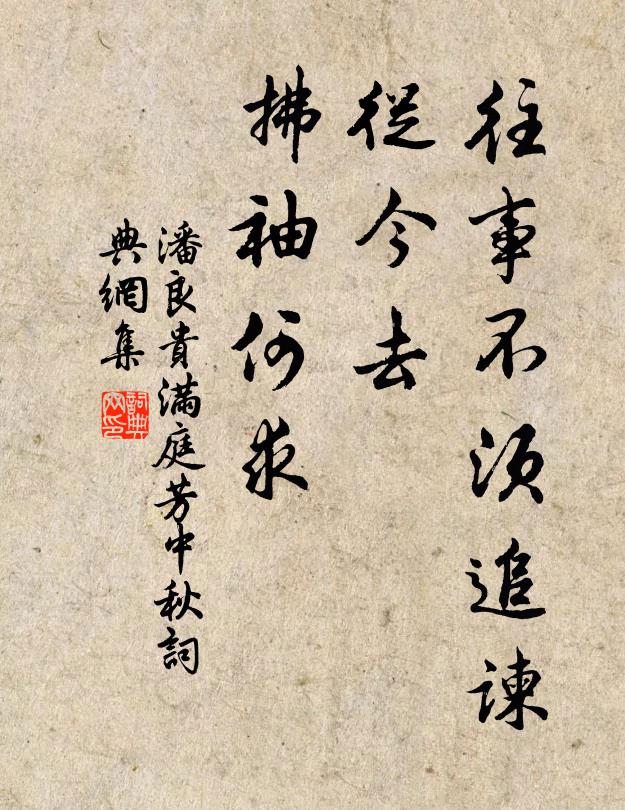 往事不須追諫
從今去
拂袖何求
潘良貴滿庭芳中秋詞
典網集
詞典
网印